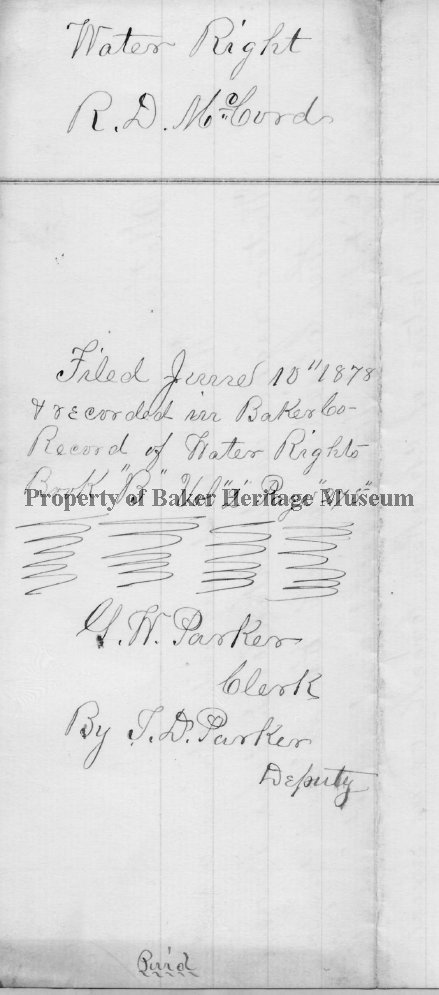 Water Right
R. D. McCord
Filed June 10" 1878
& recorded in Baker Co-
Record of Water Rights
Book "B"
Property of Baker Heritage Museum
G. W. Parker
Clerk
By T. D. Parker
Deputy